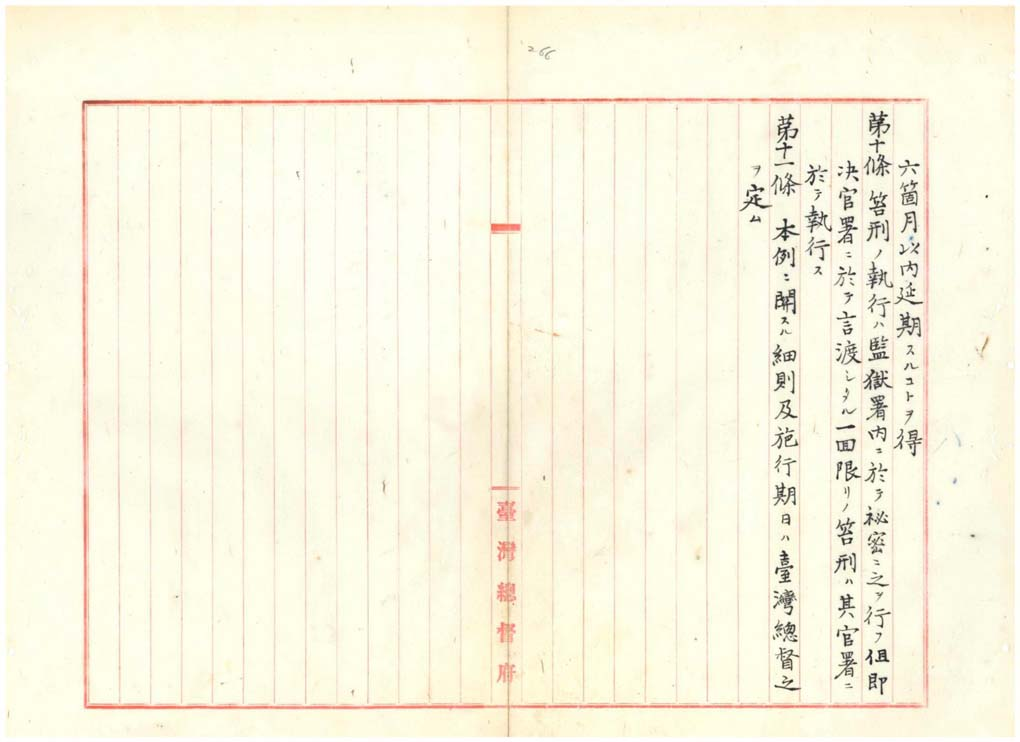 266
六箇月以内延期スルコトヲ得
第十條 笞刑ノ執行ハ監獄署内ニ於テ祕密ニ之ヲ行フ但即
決官署ニ於テ言渡シタル一回限リノ笞刑ハ其官署ニ
於テ執行ス
第十一條 本例ニ關スル細則及施行期日ハ臺灣總督之
ヲ定ム
臺灣總督府